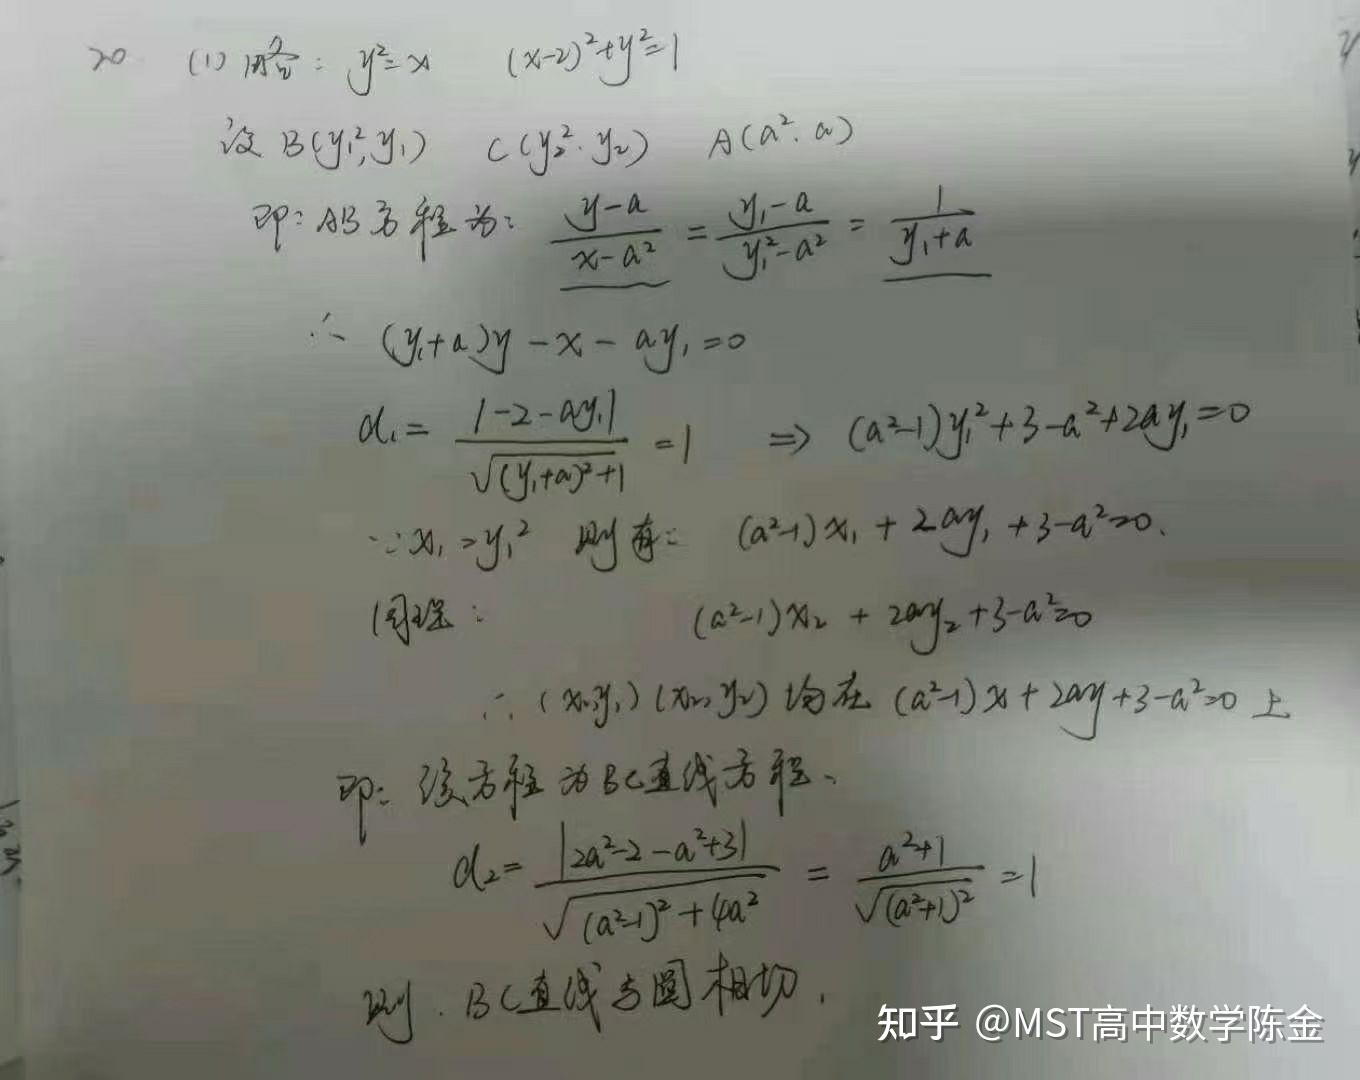 20 (1) 略: y²=x (x-2)²+y²=1
设 B(y₁²,y₁) C(y₂²,y₂) A(a²,a)
即: AB方程为: (y-a)/(x-a²) = (y₁-a)/(y₁²-a²) = 1/(y₁+a)
∴ (y₁+a)y-x-ay₁=0
d₁= |-2-ay₁|/√((y₁+a)²+1) =1 ⇒ (a²-1)y₁²+3-a²+2ay₁=0
∵x₁=y₁² 则有: (a²-1)x₁+2ay₁+3-a²=0.
同理: (a²-1)x₂+2ay₂+3-a²=0
∴(x₁,y₁)(x₂,y₂)均在(a²-1)x+2ay+3-a²=0上
即: 该方程为BC直线方程、
d₂= |2a²-2-a²+3|/√((a²-1)²+4a²) = (a²+1)/√((a²+1)²) =1
则.BC直线与圆相切.
知乎 @MST高中数学陈金